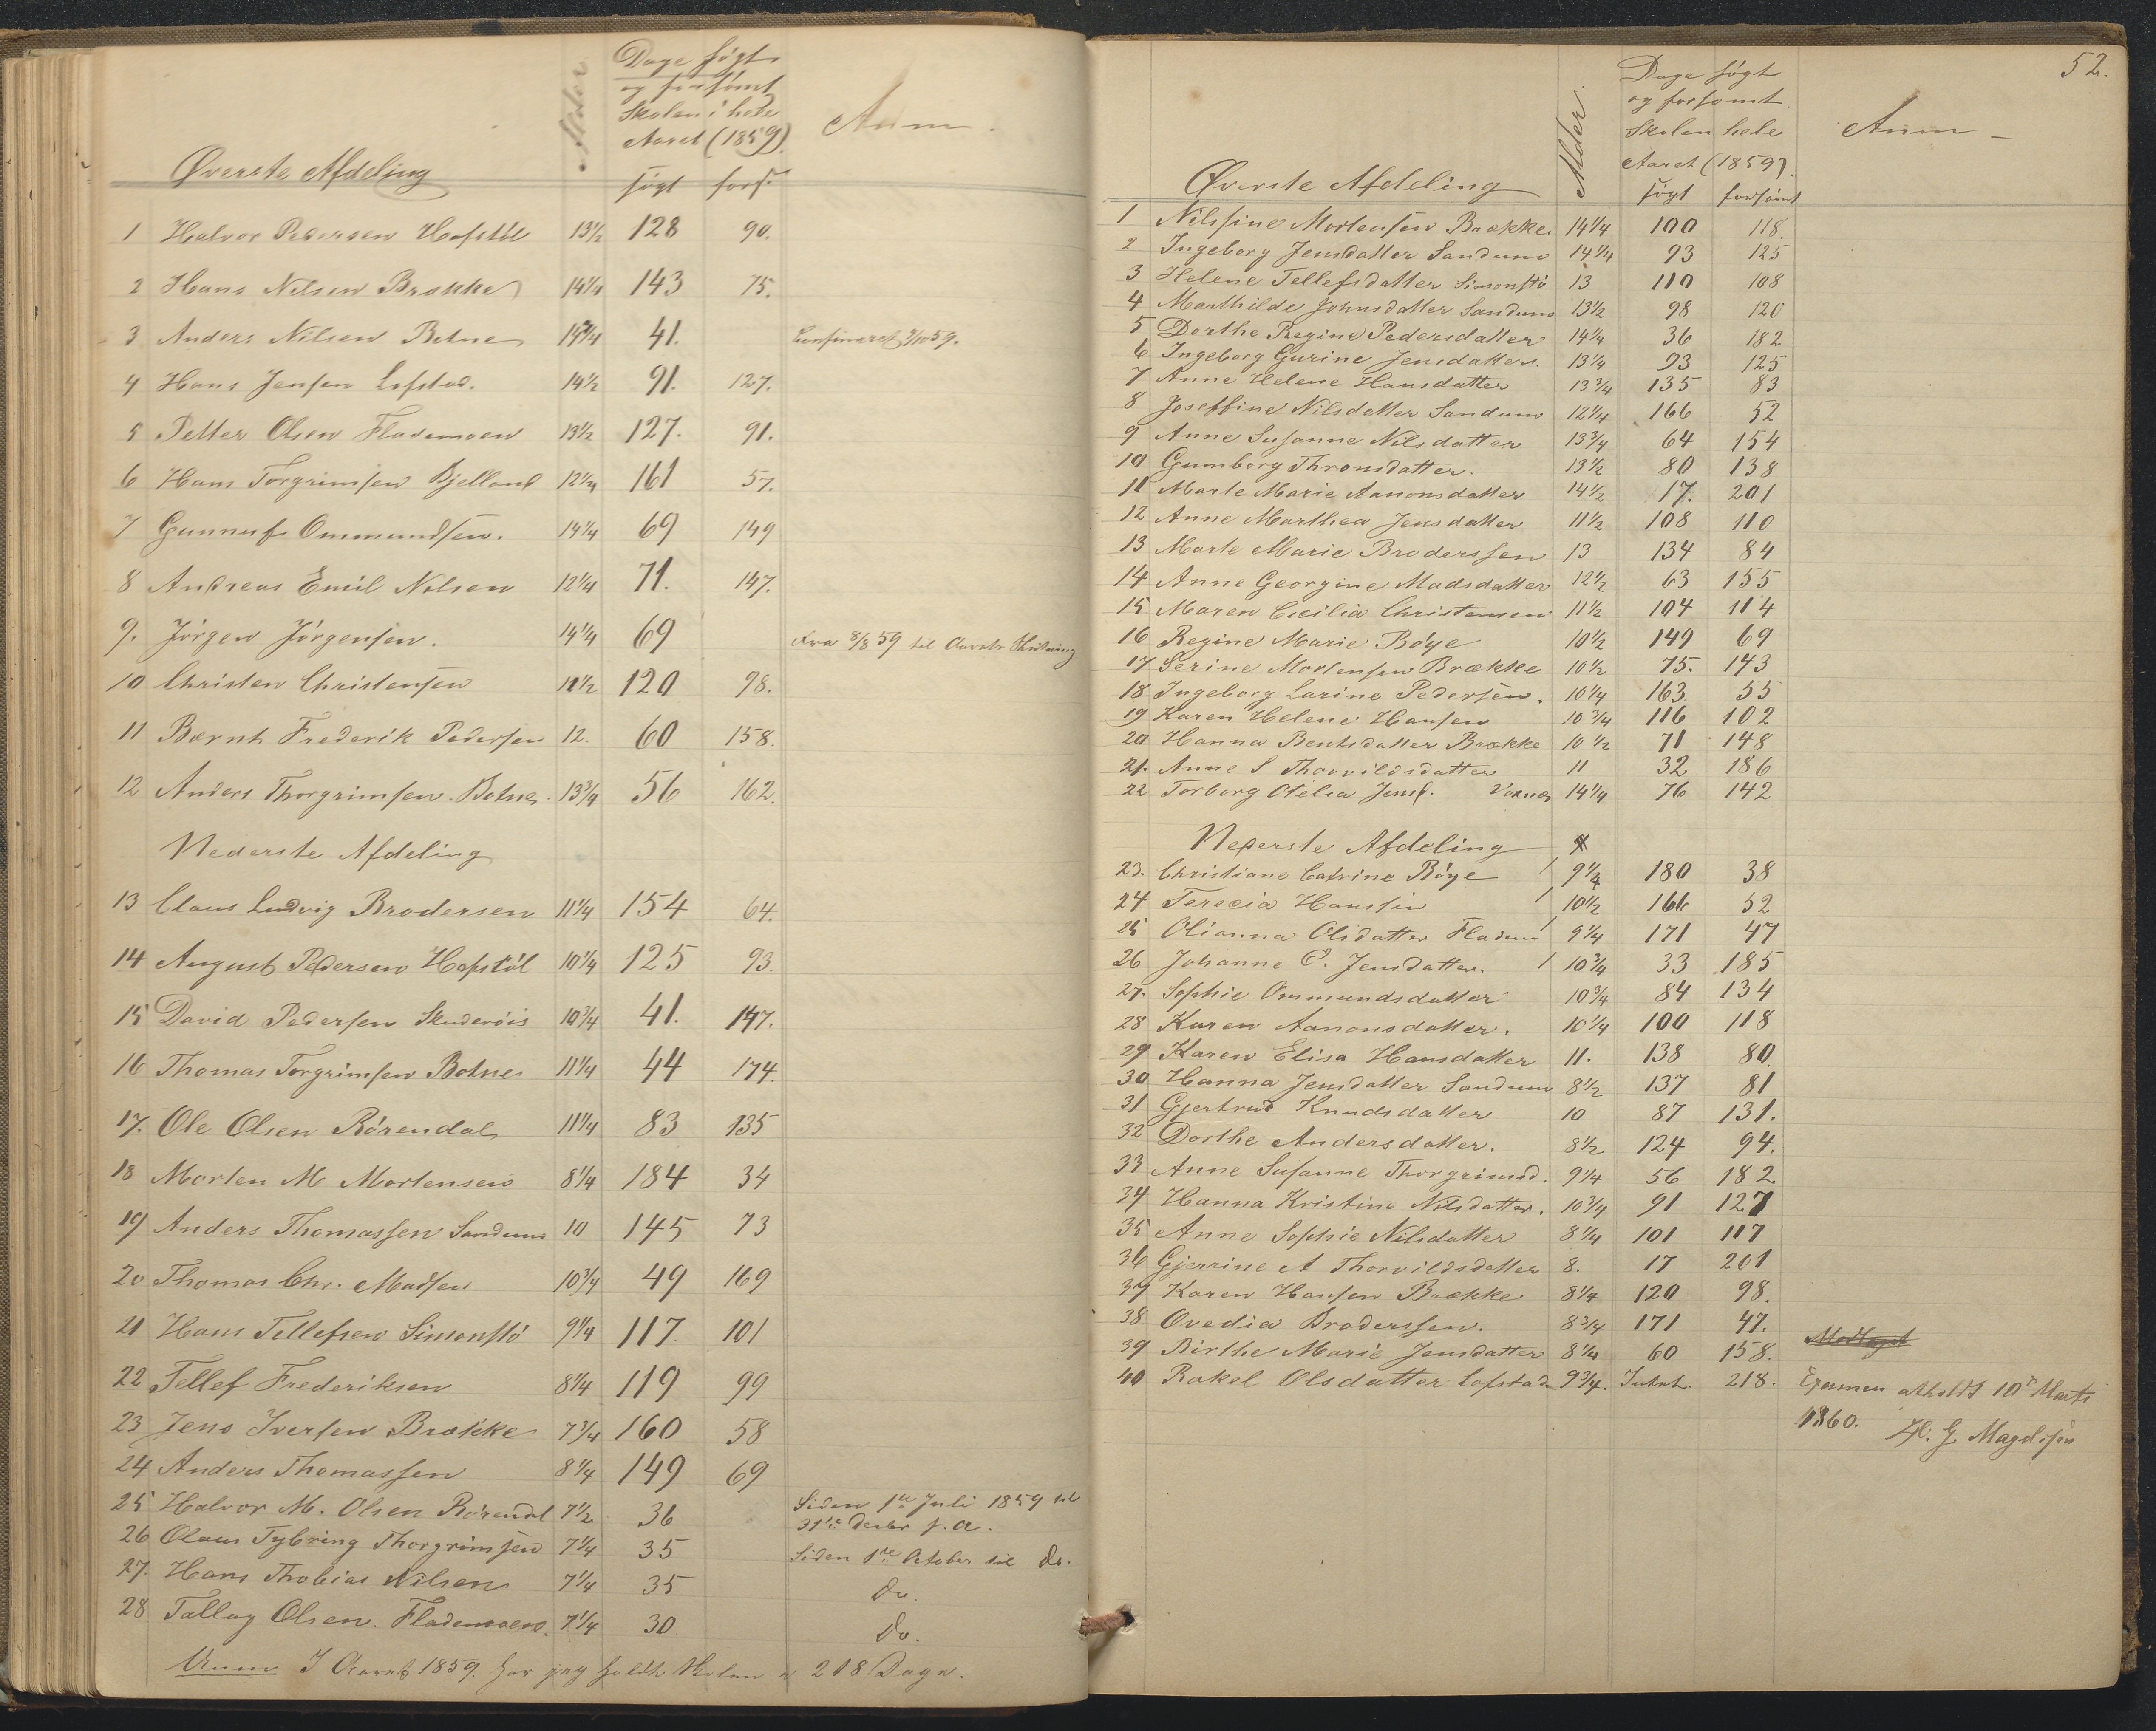 Øverste Afdeling
Alder
Dage søgt
og forsømt
Skolen i hele
Aaret (1859)
søgt fors.
Anm.
1 Halvor Pedersen Hafstöl 13½ 128 90.
2 Hans Nilsen Brække 14¼ 143 75.
3 Anders Nilsen Botne 14¾ 41. Confirmeret 2/10 59.
4 Hans Jensen Lofstad. 14½ 91. 127.
5 Petter Olsen Flademoen 13½ 127. 91.
6 Hans Torgrimsen Bjelland 12¼ 161 57.
7 Gunnuf Ommundsen. 14¼ 69 149
8 Andreas Emil Nilsen 12¼ 71. 147.
9. Jörgen Jörgensen. 14¼ 69 Fra 8/8 59 til Aarets Slutning
10 Christen Christensen 12½ 120 98.
11 Bernth Frederik Pedersen 12. 60 158.
12 Anders Thorgrimsen Botne. 13¾ 56 162.
Nederste Afdeling
13 Claus Ludvig Brodersen 11¼ 154 64.
14 August Pedersen Hafstöl 10¼ 125 93.
15 David Pedersen Skuderöis 10¾ 41. 147.
16 Thomas Torgrimsen Botne 11¼ 44 174.
17. Ole Olsen Rörendal 11¼ 83 135
18 Morten M Mortensen 8¼ 184 34
19 Anders Thomassen Sandum 10 145 73
20 Thomas Chr. Madsen 10¾ 49 169
21 Hans Tellefsen Simonstö 9¼ 117. 101
22 Tellef Frederiksen 8¼ 119 99
23 Jens Iversen Brække 7¾ 160 58
24 Anders Thomassen 8¼ 149 69
25 Halvor M. Olsen Rörendl 7½ 36 Siden 1te Juli 1859 til
31te Decbr s.a.
26 Olaus Tybring Thorgrimsen 7¼ 35 Siden 1te October til do.
27. Hans Thobias Nilsen 7¼ 35 Do.
28 Tallag Olsen Flademoen. 7¼ 30 Do.
Anm I Aaret 1859. har jeg holdt Skolen i 218 Dage.
52.
Øverste Afdeling
Alder
Dage søgt
og forsømt
Skolen hele
Aaret (1859).
søgt forsømt
Anm
1 Nilsine Mortensen Brække 14¼ 100 118.
2 Ingeborg Jensdatter Sandum 14¼ 93 125
3 Helene Tellefsdatter Simonstö 13 110 108
4 Marthilde Johnsdatter Sandum 13½ 98 120
5 Dorthe Regine Pedersdatter 14¼ 36 182
6 Ingeborg Gurine Jensdatter. 13¼ 93 125
7 Anne Helene Hansdatter 13¾ 135 83
8 Josefine Nilsdatter Sandum 12¼ 166 52
9 Anne Susanne Nilsdatter 13¾ 64 154
10 Gumborg Thronsdatter. 13½ 80 138
11 Marte Marie Aanonsdatter 14½ 17. 201
12 Anne Marthea Jensdatter 11½ 108 110
13 Marte Marie Brodersen 13 134 84
14 Anne Georgine Madsdatter 12½ 63 155
15 Maren Cecilia Christensen 11½ 104 114
16 Regine Marie Böye 10½ 149 69
17 Serine Mortensen Brække 10½ 75. 143
18 Ingeborg Larine Pedersen. 10¼ 163 55
19 Karen Helene Hansen 10¾ 116 102
20 Hanna Bentsdatter Brække 10½ 71 148
21. Anne S Thorvildsdatter 11 32 186
22 Torborg Otelia Jensd. 14¼ 76 142
Nederste Afdeling
23. Christiane Catrine Böye 9¼ 180 38
24 Terecia Hansin 10½ 166 52
25 Olianna Olsdatter Fladem 9¼ 171 47
26 Johanne C. Jensdatter. 10¾ 33 185
27. Sophie Ommundsdatter 10¾ 84 134
28 Karen Aanonsdatter. 10¼ 100 118
29 Karen Elisa Hansdatter 11. 138 80
30 Hanna Jensdatter Sandum 8½ 137 81
31 Gjertrud Knudsdatter 10 87 131.
32 Dorthe Andersdatter. 8½ 124 94.
33 Anne Susanne Thorgrimsd. 9¼ 56 182
34 Hanna Kristine Nilsdatter. 10¾ 91 127
35 Anne Sophie Nilsdatter 8¼ 101 117
36 Gjerrine A Thorvildsdatter 8. 17 201
37 Karen Hansen Brække 8¼ 120 98.
38 Ovedia Broderssen. 8¾ 171 47.
39 Birthe Marie Jensdatter 8¼ 60 158.
40 Rakel Olsdatter Lofstad 9¾. Intet. 218.
Examen afholdt 10de Marts
1860.